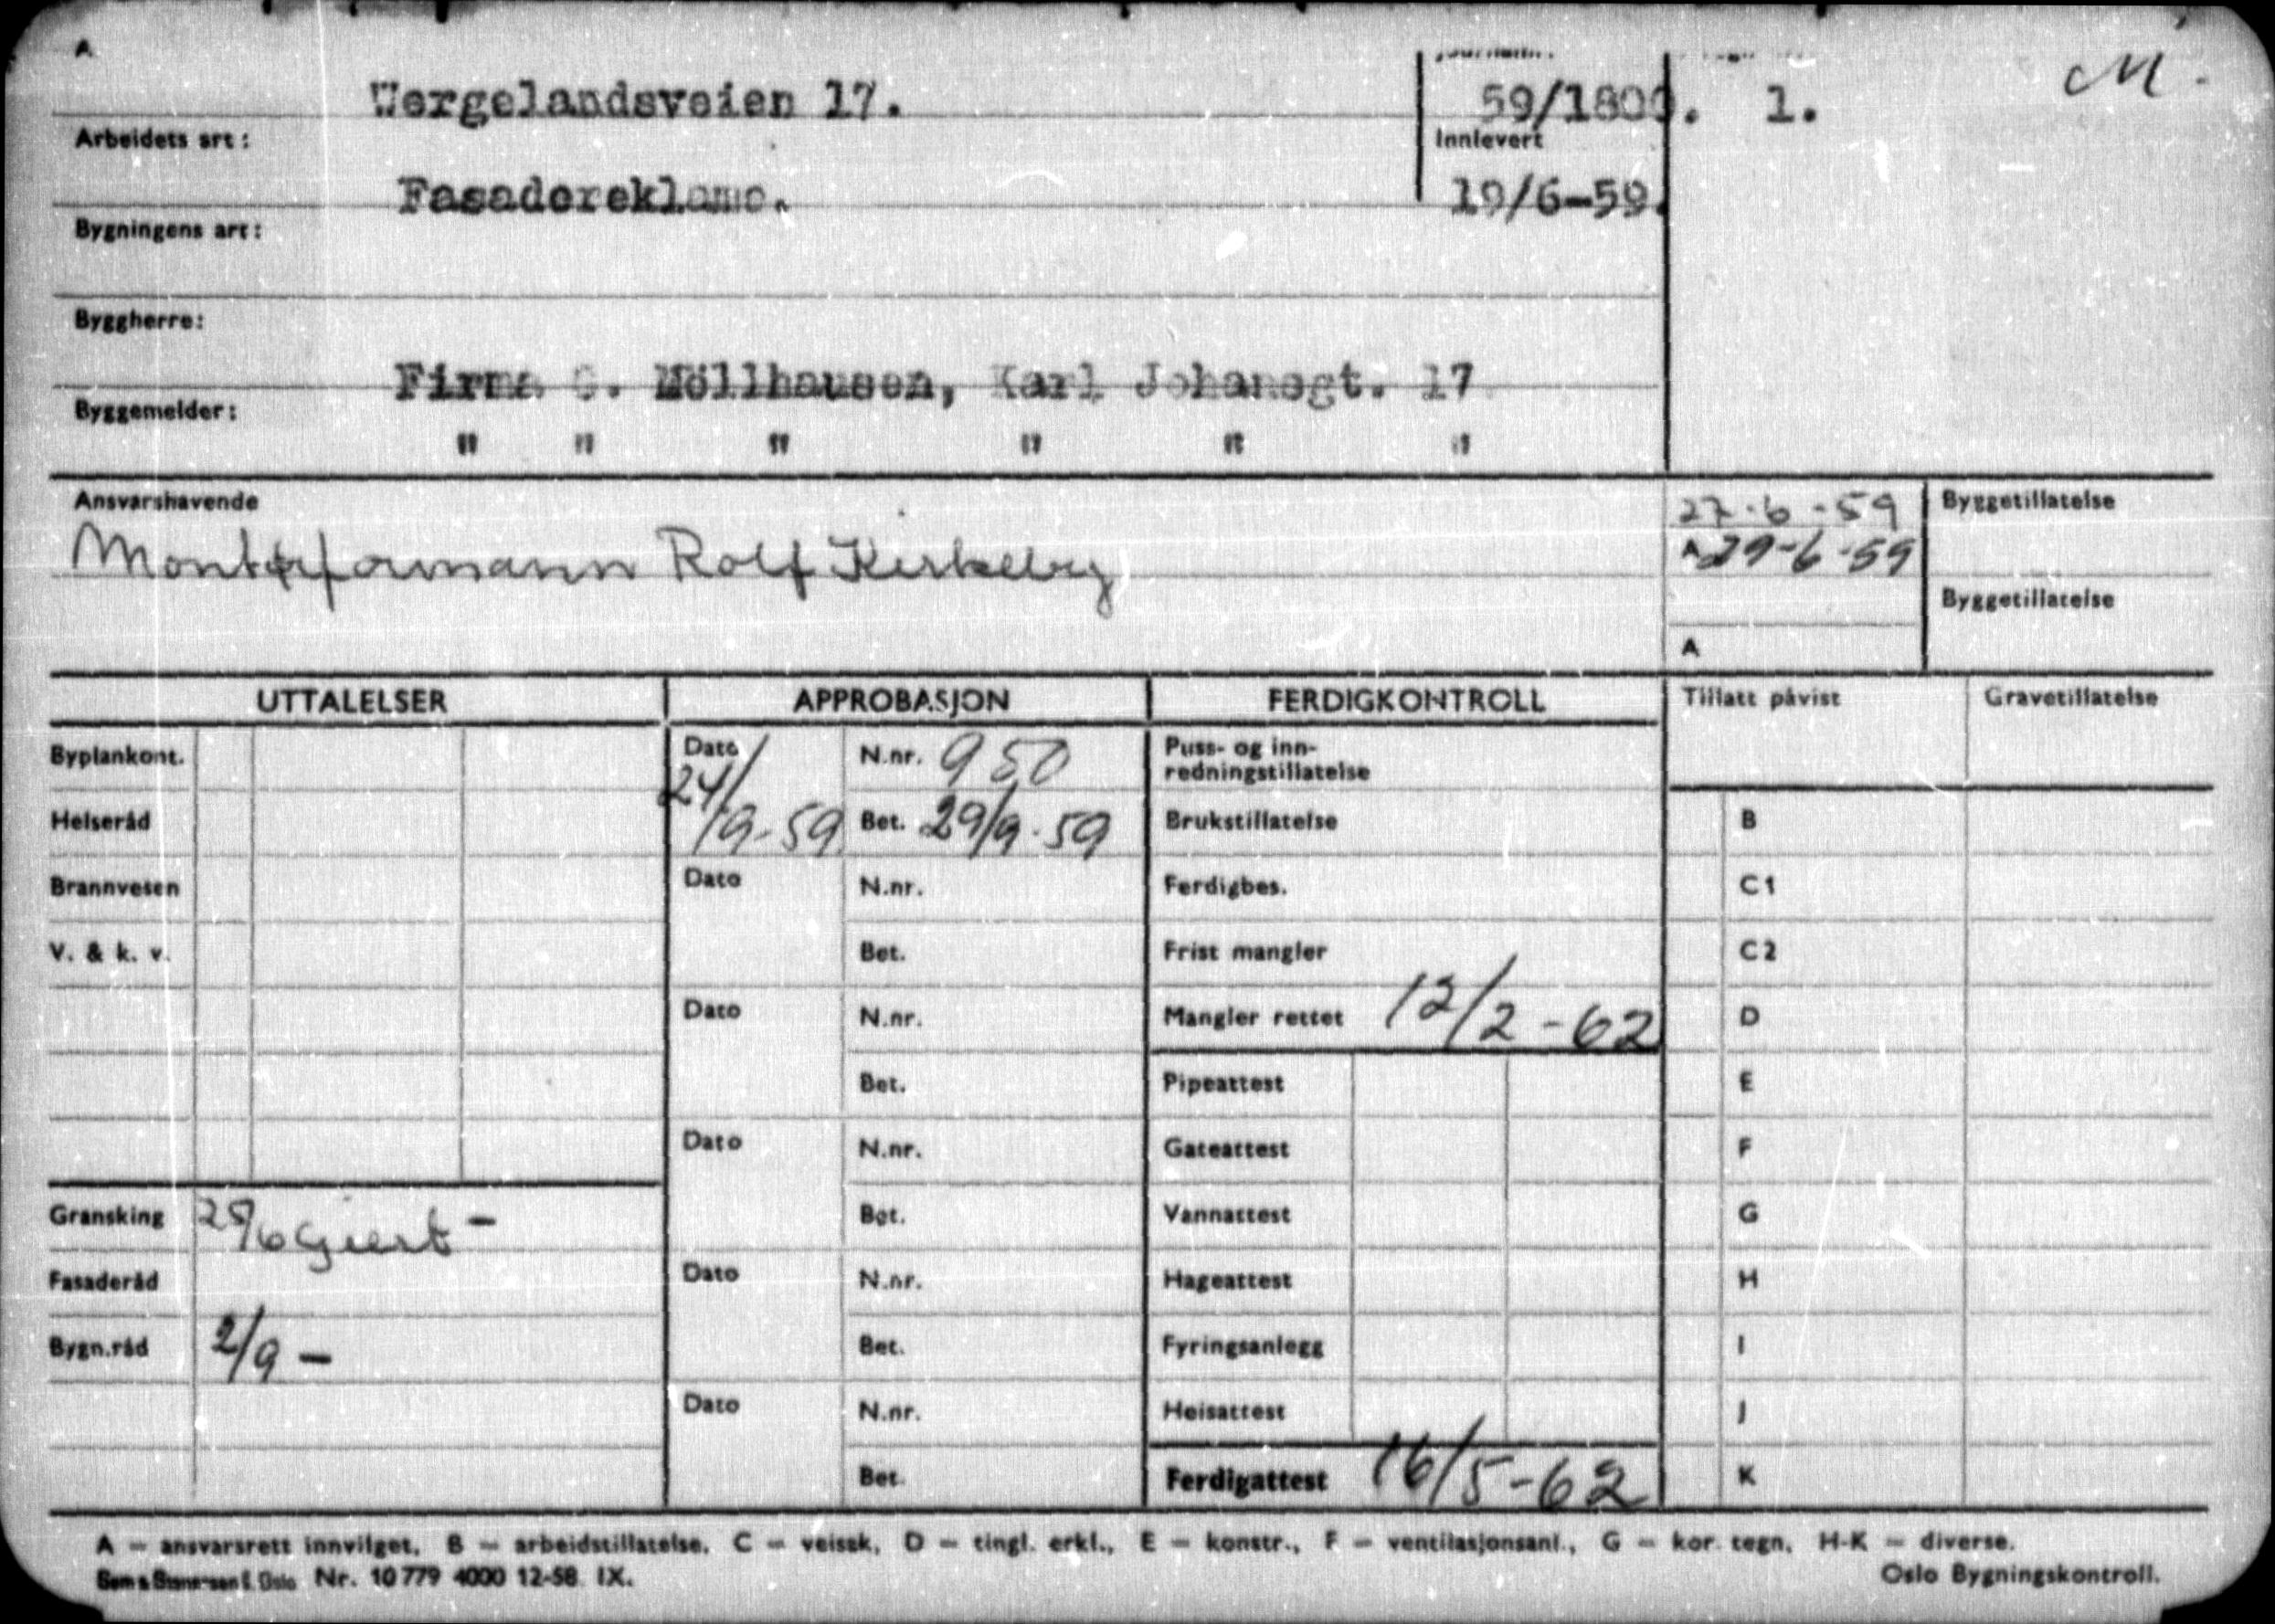 A
M.
Wergelandsveien 17.
59/1800. 1.
Arbeidets art:
Innlevert
Fasadereklame.
19/6-59.
Bygningens art:
Byggherre:
Firma C. Möllhausen, Karl Johansgt. 17
Byggemelder:
" " " " " "
Ansvarshavende
Montørformann Rolf Kirkeby
27-6-59
A 29-6-59
Byggetillatelse
Byggetillatelse
A
UTTALELSER APPROBASJON FERDIGKONTROLL Tillatt påvist Gravetillatelse
Byplankont. Dato N.nr. 950 Puss- og inn-
redningstillatelse
Helseråd 24/9-59 Bet. 29/9-59 Brukstillatelse B
Brannvesen Dato N.nr. Ferdigbes. C1
V. & k. v. Bet. Frist mangler C2
Dato N.nr. Mangler rettet 12/2-62 D
Bet. Pipeattest E
Dato N.nr. Gateattest F
Gransking Bet. Vannattest G
Fasaderåd Dato N.nr. Hageattest H
Bygn.råd 2/9 - Bet. Fyringsanlegg I
Dato N.nr. Heisattest J
Bet. Ferdigattest 16/5-62 K
A = ansvarsrett innvilget, B = arbeidstillatelse, C = veisak, D = tingl. erkl., E = konstr., F = ventilasjonsanl., G = kor. tegn, H-K = diverse.
Nr. 10779 4000 12-58 IX. Oslo Bygningskontroll.